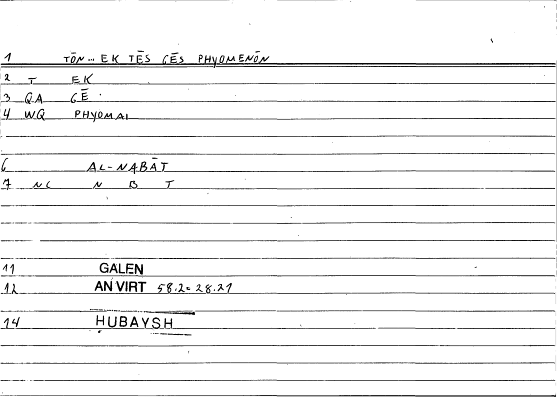 1 TŌN... EK TĒS GĒS PHYOMENŌN
2 T EK
3 QA GĒ
4 WQ PHYOMAI
6 AL-NABĀT
7 NC N B T
11 GALEN
12 AN VIRT 58.20 28.21
14 ḤUBAYSH